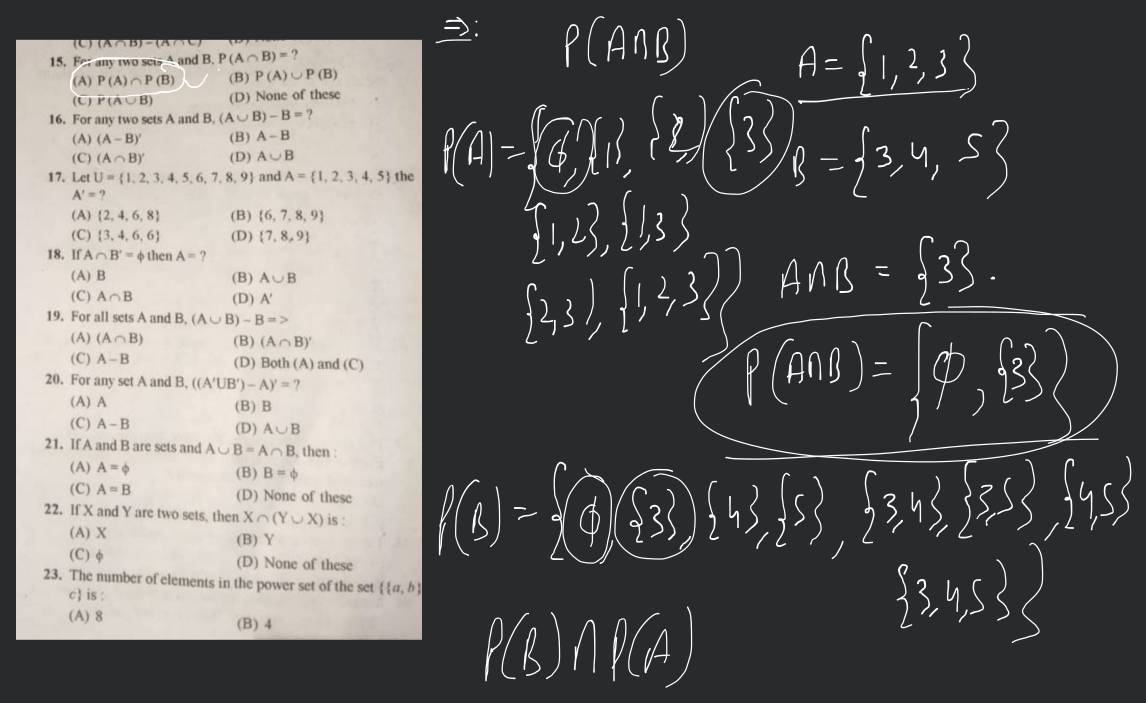 (C) (A∩B)–(A∩C)
15. For any two sets A and B, P (A∩B) = ?
(A) P (A)∩P (B) (B) P (A)∪P (B)
(C) P(A∪B) (D) None of these
16. For any two sets A and B, (A∪B) – B = ?
(A) (A – B)' (B) A – B
(C) (A∩B)' (D) A∪B
17. Let U = {1, 2, 3, 4, 5, 6, 7, 8, 9} and A = {1, 2, 3, 4, 5} the
A' = ?
(A) {2, 4, 6, 8} (B) {6, 7, 8, 9}
(C) {3, 4, 6, 6} (D) {7, 8, 9}
18. If A∩B' = ϕ then A = ?
(A) B (B) A∪B
(C) A∩B (D) A'
19. For all sets A and B, (A∪B) – B = >
(A) (A∩B) (B) (A∩B)'
(C) A – B (D) Both (A) and (C)
20. For any set A and B, ((A'UB') – A)' = ?
(A) A (B) B
(C) A – B (D) A∪B
21. If A and B are sets and A∪B = A∩B, then :
(A) A = ϕ (B) B = ϕ
(C) A = B (D) None of these
22. If X and Y are two sets, then X∩(Y∪X) is :
(A) X (B) Y
(C) ϕ (D) None of these
23. The number of elements in the power set of the set {{a, b}
c} is :
(A) 8 (B) 4
⇒:
P(A∩B)
A = {1, 2, 3}
P(A) = {ϕ, {1}, {2}, {3}
B = {3, 4, 5}
{1,2}, {1,3}
{2,3}, {1,2,3}}
A∩B = {3}.
P(A∩B) = {ϕ, {3}}
P(B) = {ϕ, {3}, {4}, {5}, {3,4}, {3,5}, {4,5}
{3,4,5}}
P(B)∩P(A)